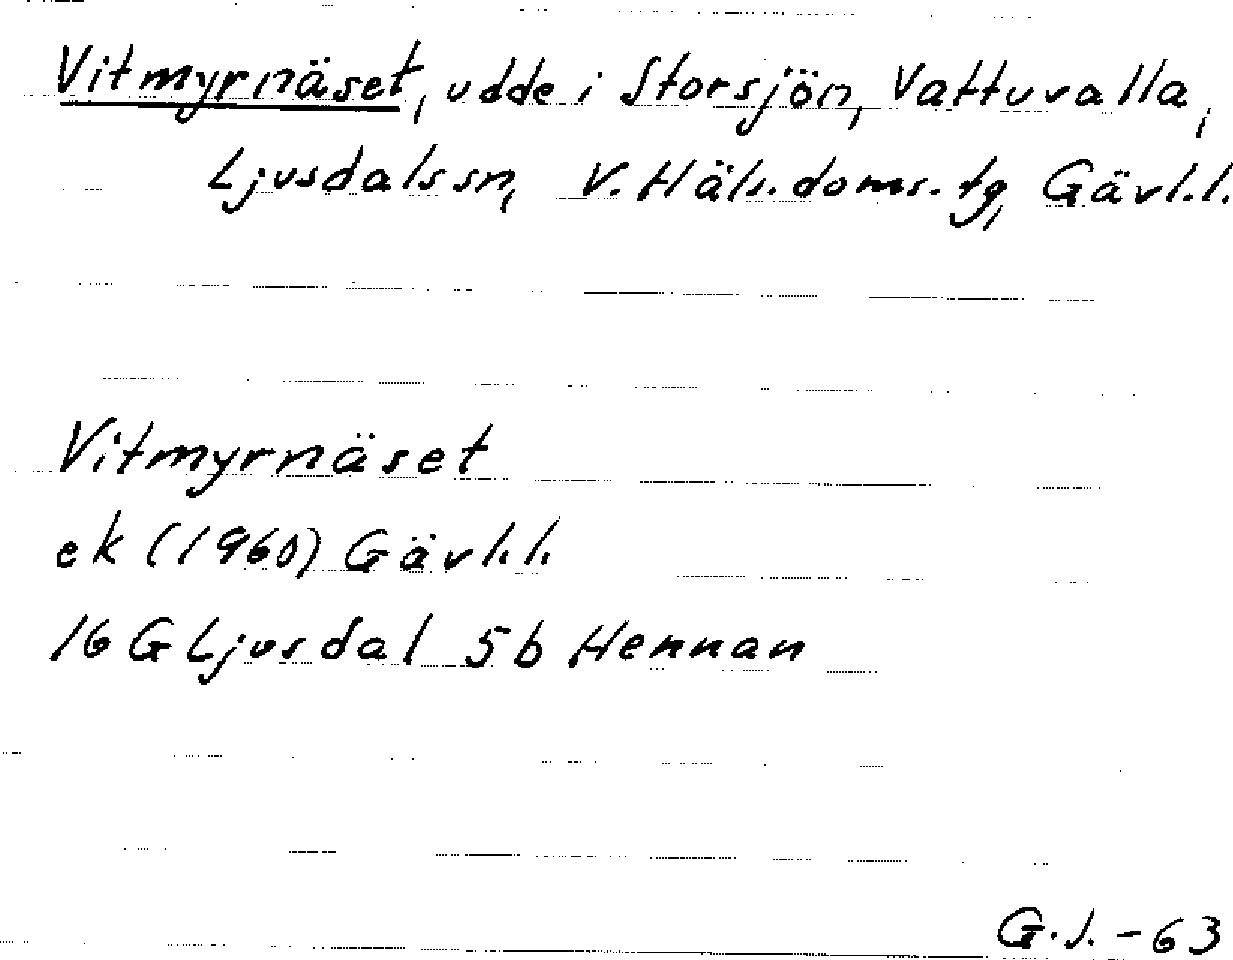 Vitmyrnäset, udde i Storsjön, Vattuvalla,
Ljusdals sn, V. Häls. doms. tg, Gävl. l.
Vitmyrnäset
ek (1960) Gävl. l.
16 G Ljusdal 5b Hennan
G. J. - 63